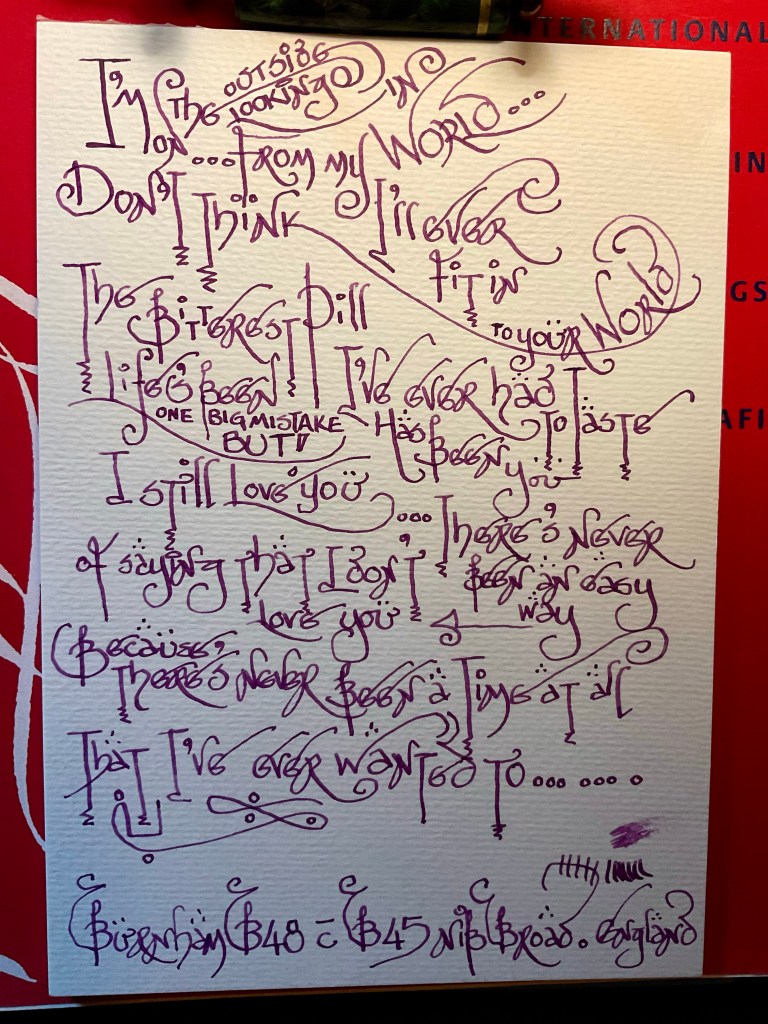 INTERNATIONAL
IN
GS
AFI
I'm on the outside looking in
...from my World...
Don't Think I'll ever
fit in
to your World
The Bitterest Pill
I've ever had To Taste
Life's Been
ONE BIG MISTAKE
BUT!
Has Been you
I still love you
...There's never
Been an easy
way
of saying that I don't
love you
Because,
There's Never Been a Time at all
That I've ever wanted to... ... .
Burnham B48 = B45 nib Broad. England